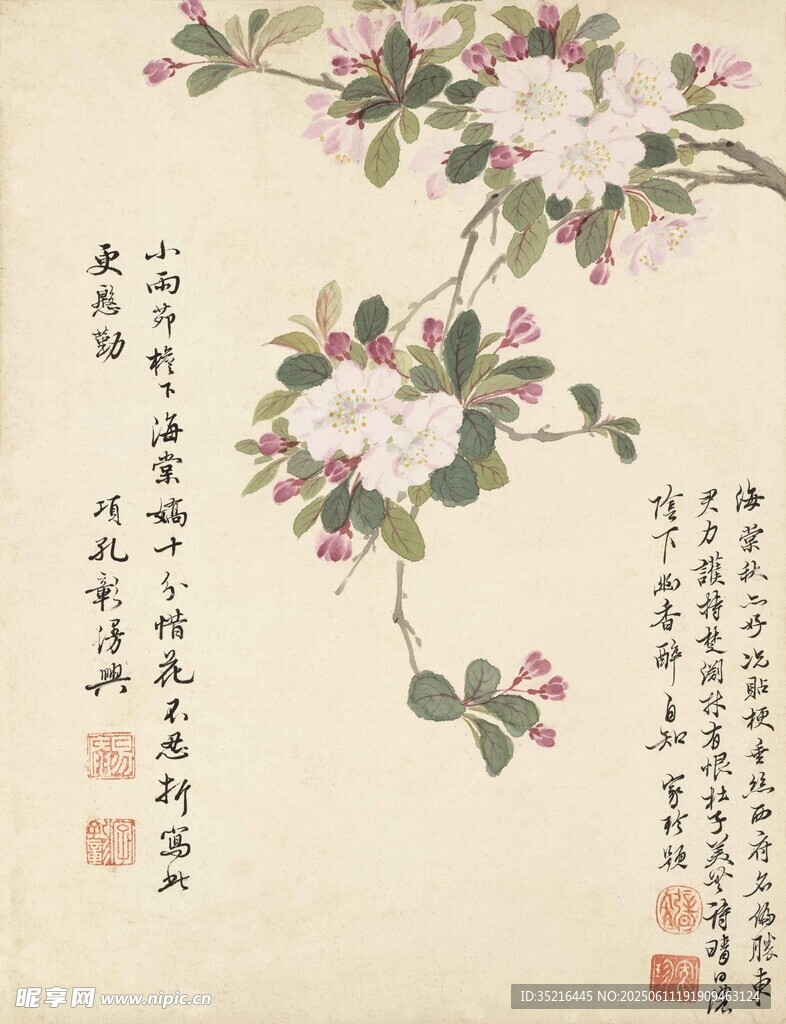 海棠秋亦好況貼梗垂絲西府名偏勝東
君力護持淵材有恨杜子美無詩晴日濃
陰下幽香醉自知 家珍題
小雨茆檐下海棠嬌十分惜花不忍折寫此
更慇勤 項孔彰漫興
昵享网 www.nipic.cn
ID:35216445 NO:20250611191909463124